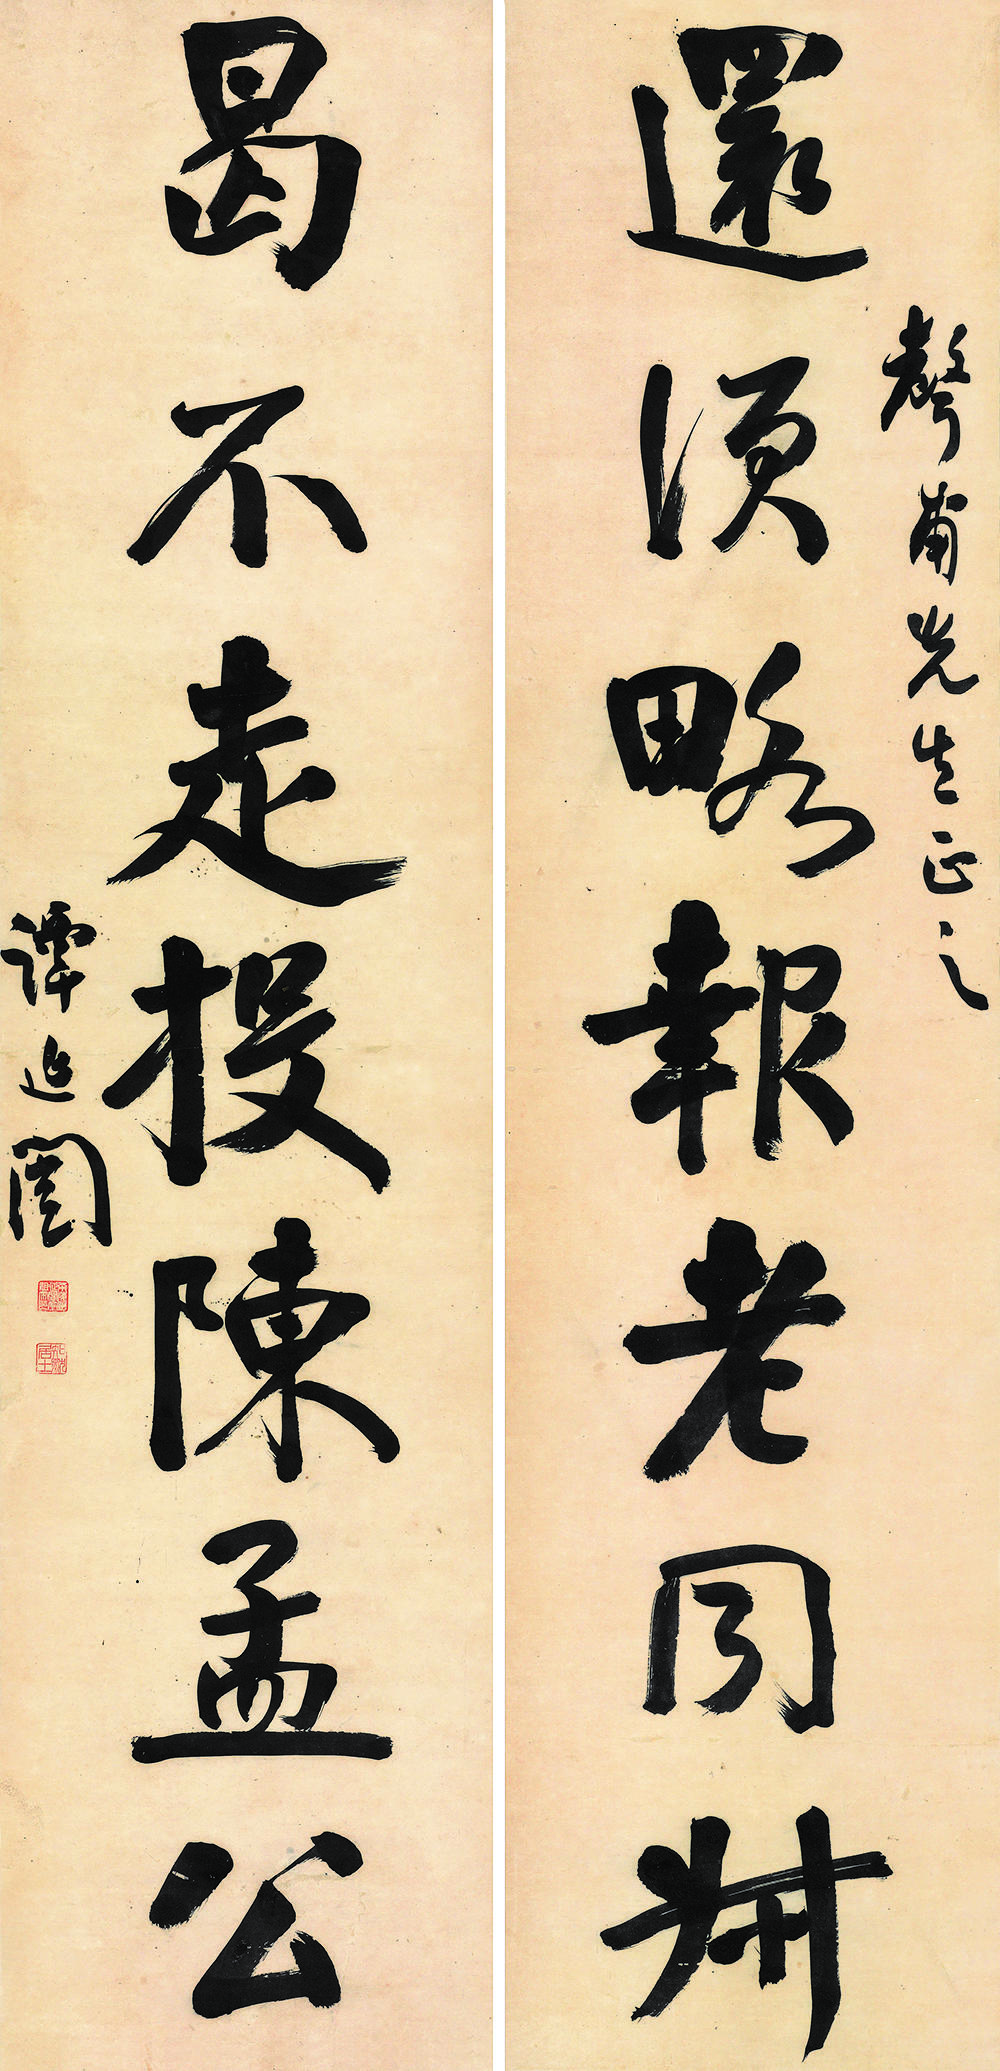 還須略報老同叔
聲甫先生正之
曷不走投陳孟公
譚延闓